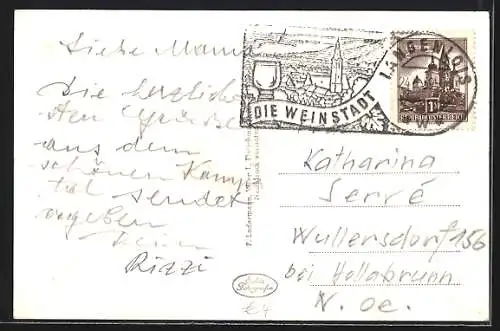 Liebe Mama
Die herzlich
sten Grüsse
aus dem
schönen Kamp
tal sendet
ergeben
Deine
Rizzi
DIE WEINSTADT
LANGENLOIS
REPUBLIK ÖSTERREICH
Katharina
Serré
Wullersdorf 156
bei Hollabrunn
N. Oe.
Echte
€4